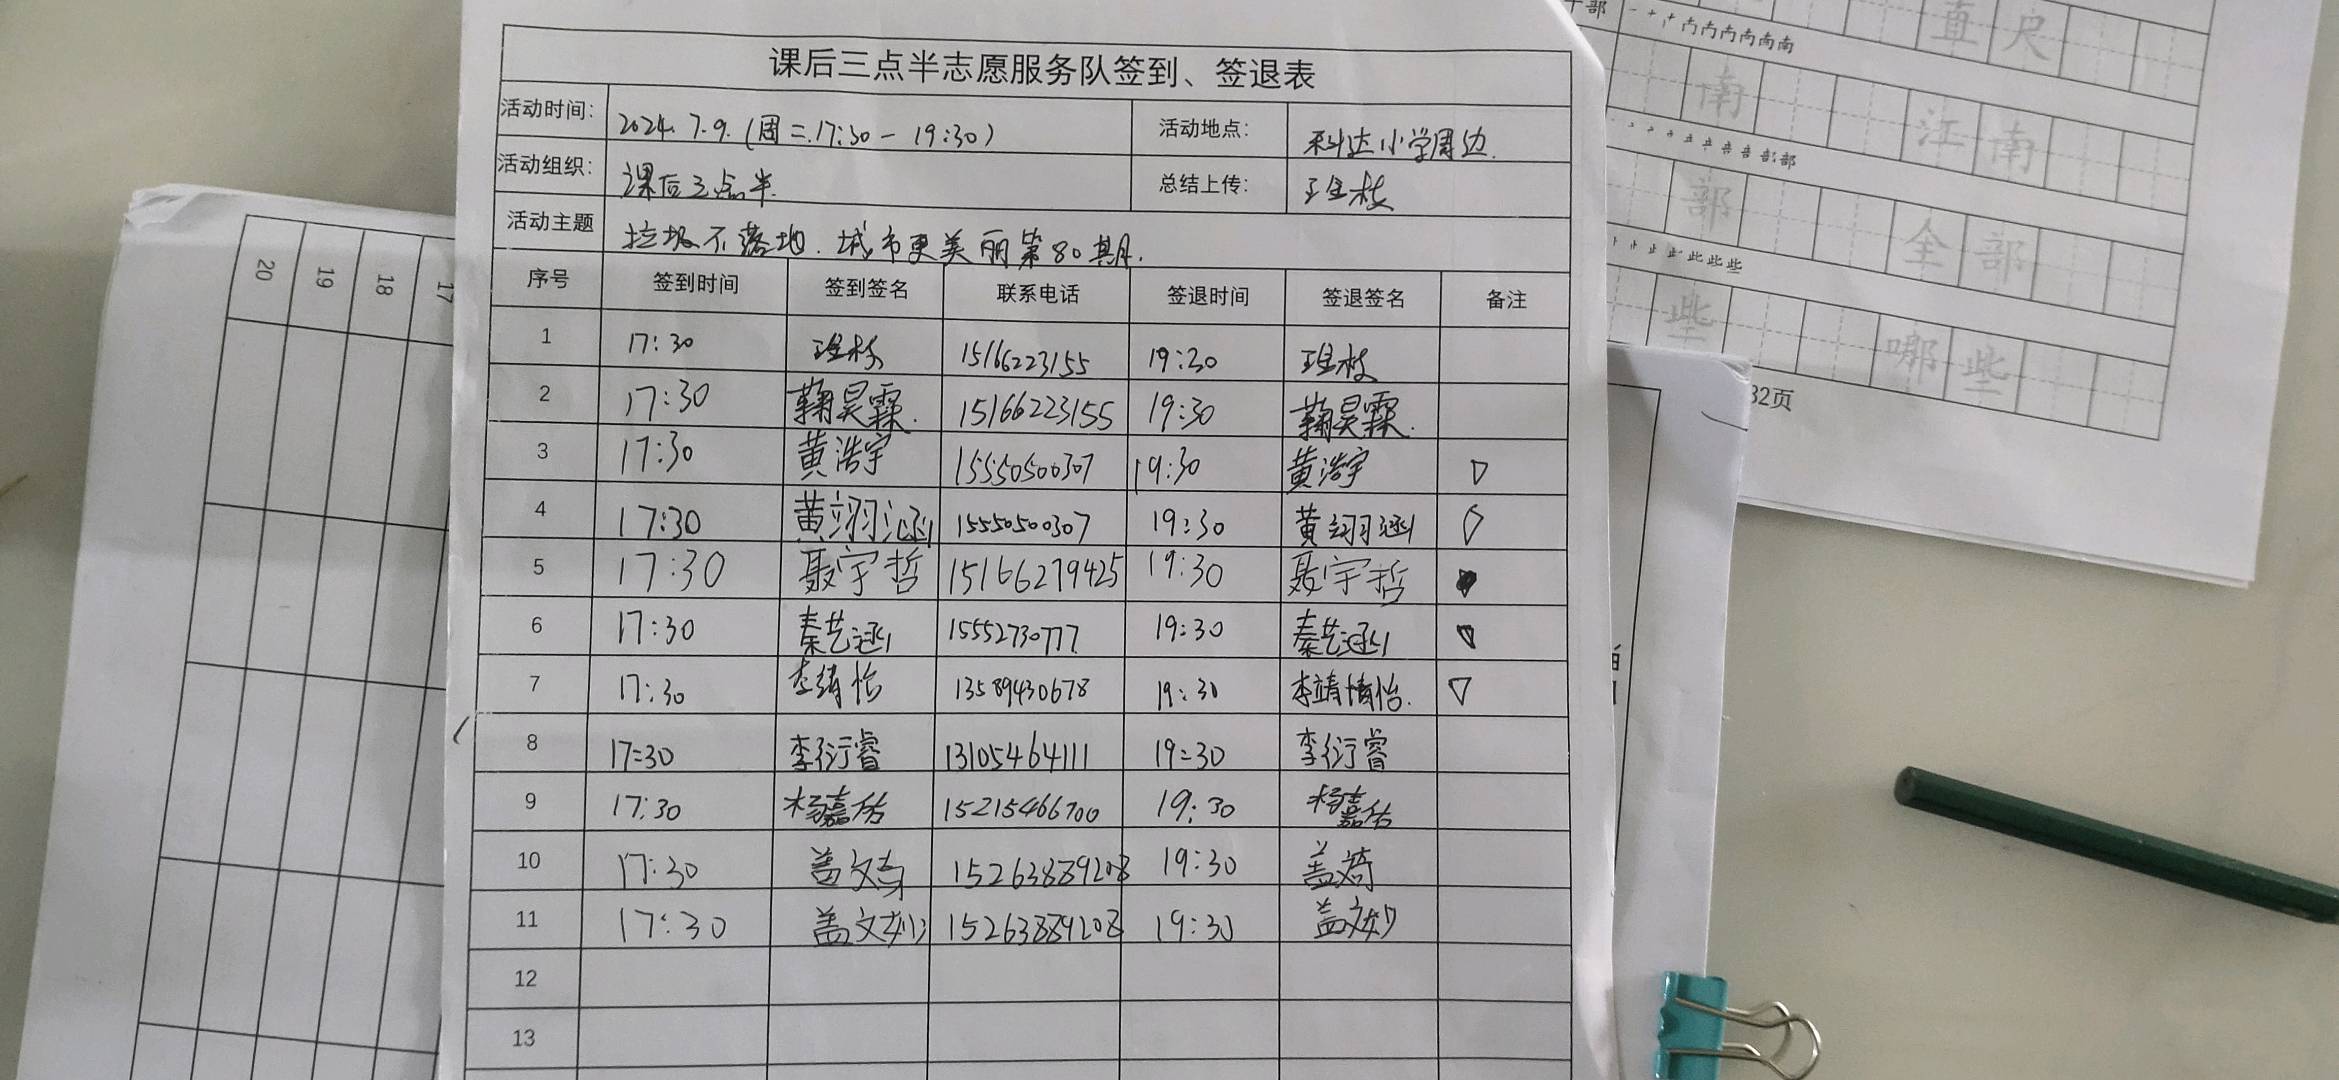 课后三点半志愿服务队签到、签退表
活动时间： 2024.7.9.(周二.17:30-19:30) 活动地点： 科达小学周边.
活动组织： 课后三点半. 总结上传：
活动主题 垃圾不落地.城市更美丽第80期.
序号 签到时间 签到签名 联系电话 签退时间 签退签名 备注
1 17:30 15166223155 19:30
2 17:30 鞠昊霖. 15166223155 19:30 鞠昊霖.
3 17:30 黄浩宇 15550500307 19:30 黄浩宇
4 17:30 黄翊涵 15550500307 19:30 黄翊涵
5 17:30 聂宇哲 15166279425 19:30 聂宇哲
6 17:30 秦艺涵 15552730777 19:30 秦艺涵
7 17:30 李靖怡 13589430678 19:30 李靖怡.
8 17:30 李衍睿 13105464111 19:30 李衍睿
9 17:30 杨嘉佑 15215466700 19:30 杨嘉佑
10 17:30 盖文 15263889208 19:30 盖
11 17:30 盖文妙 15263889208 19:30 盖文妙
12
13
20
19
18
17
直尺
部
南 江南
部 全部
些 哪些
32页